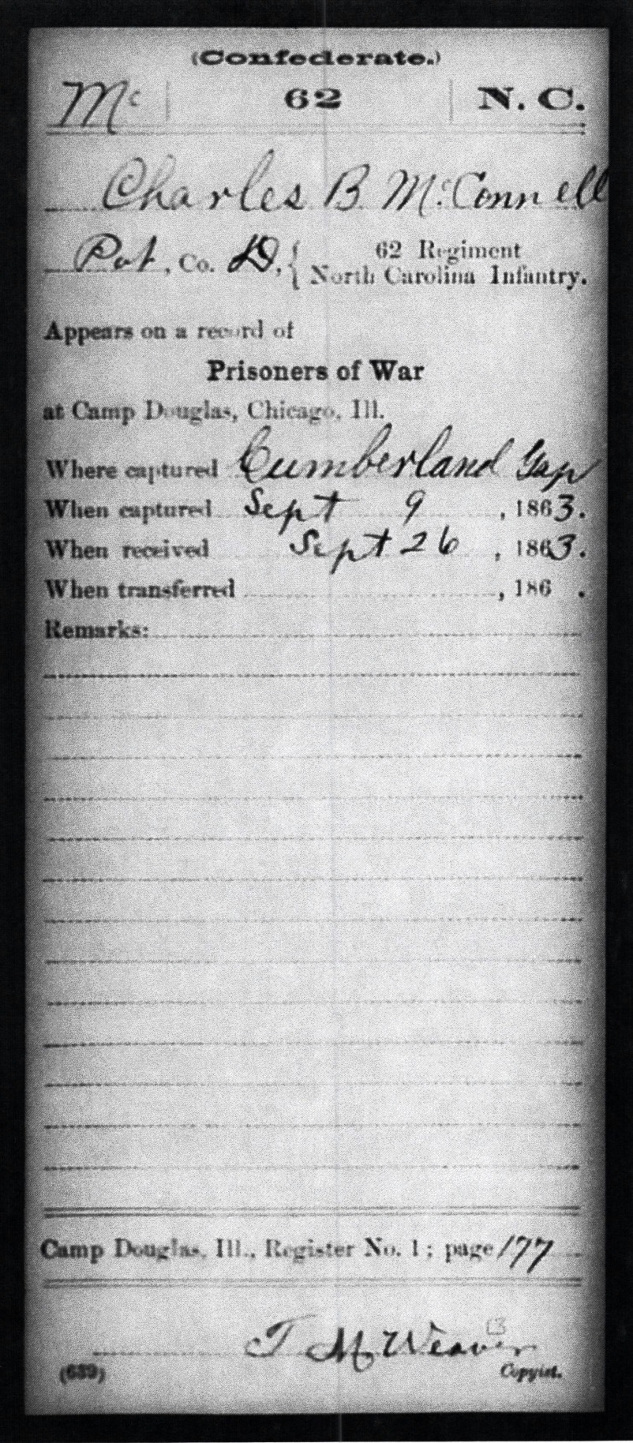 (Confederate.)
Mc 62 N. C.
Charles B McConnell
Pvt, Co. D, { 62 Regiment
North Carolina Infantry.
Appears on a record of
Prisoners of War
at Camp Douglas, Chicago, Ill.
Where captured Cumberland Gap
When captured Sept 9, 1863.
When received Sept 26, 1863.
When transferred , 186 .
Remarks:
Camp Douglas, Ill., Register No. 1; page 177
T M Weaver
(639) Copyist.